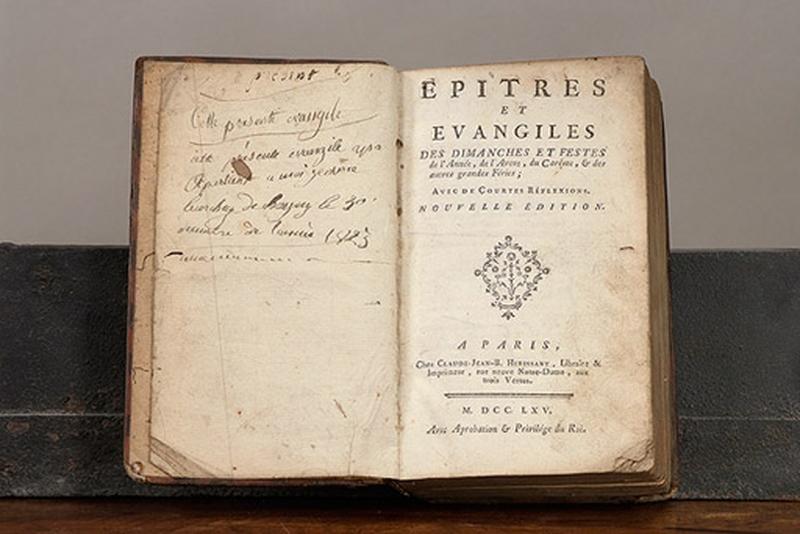 present
Cette presente evangile
presente evangile
apartient a moi
le 30
de
EPITRES
ET
EVANGILES
DES DIMANCHES ET FESTES
de l'Année, de l'Avent, du Carême, & des
autres grandes Féries ;
AVEC DE COURTES RÉFLEXIONS.
NOUVELLE ÉDITION.
A PARIS,
Chez CLAUDE-JEAN-B. HERISSANT, Libraire &
Imprimeur, rue neuve Notre-Dame, aux
trois Vertus.
M. DCC. LXV.
Avec Aprobation & Privilége du Roi.